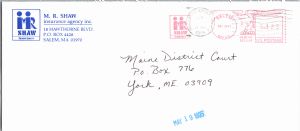 M. R. SHAW
insurance agency inc.
18 HAWTHORNE BLVD.
P.O. BOX 4428
SALEM, MA 01970
SHAW
Maine District Court
P.O. Box 776
York, ME 03909
MAY 19